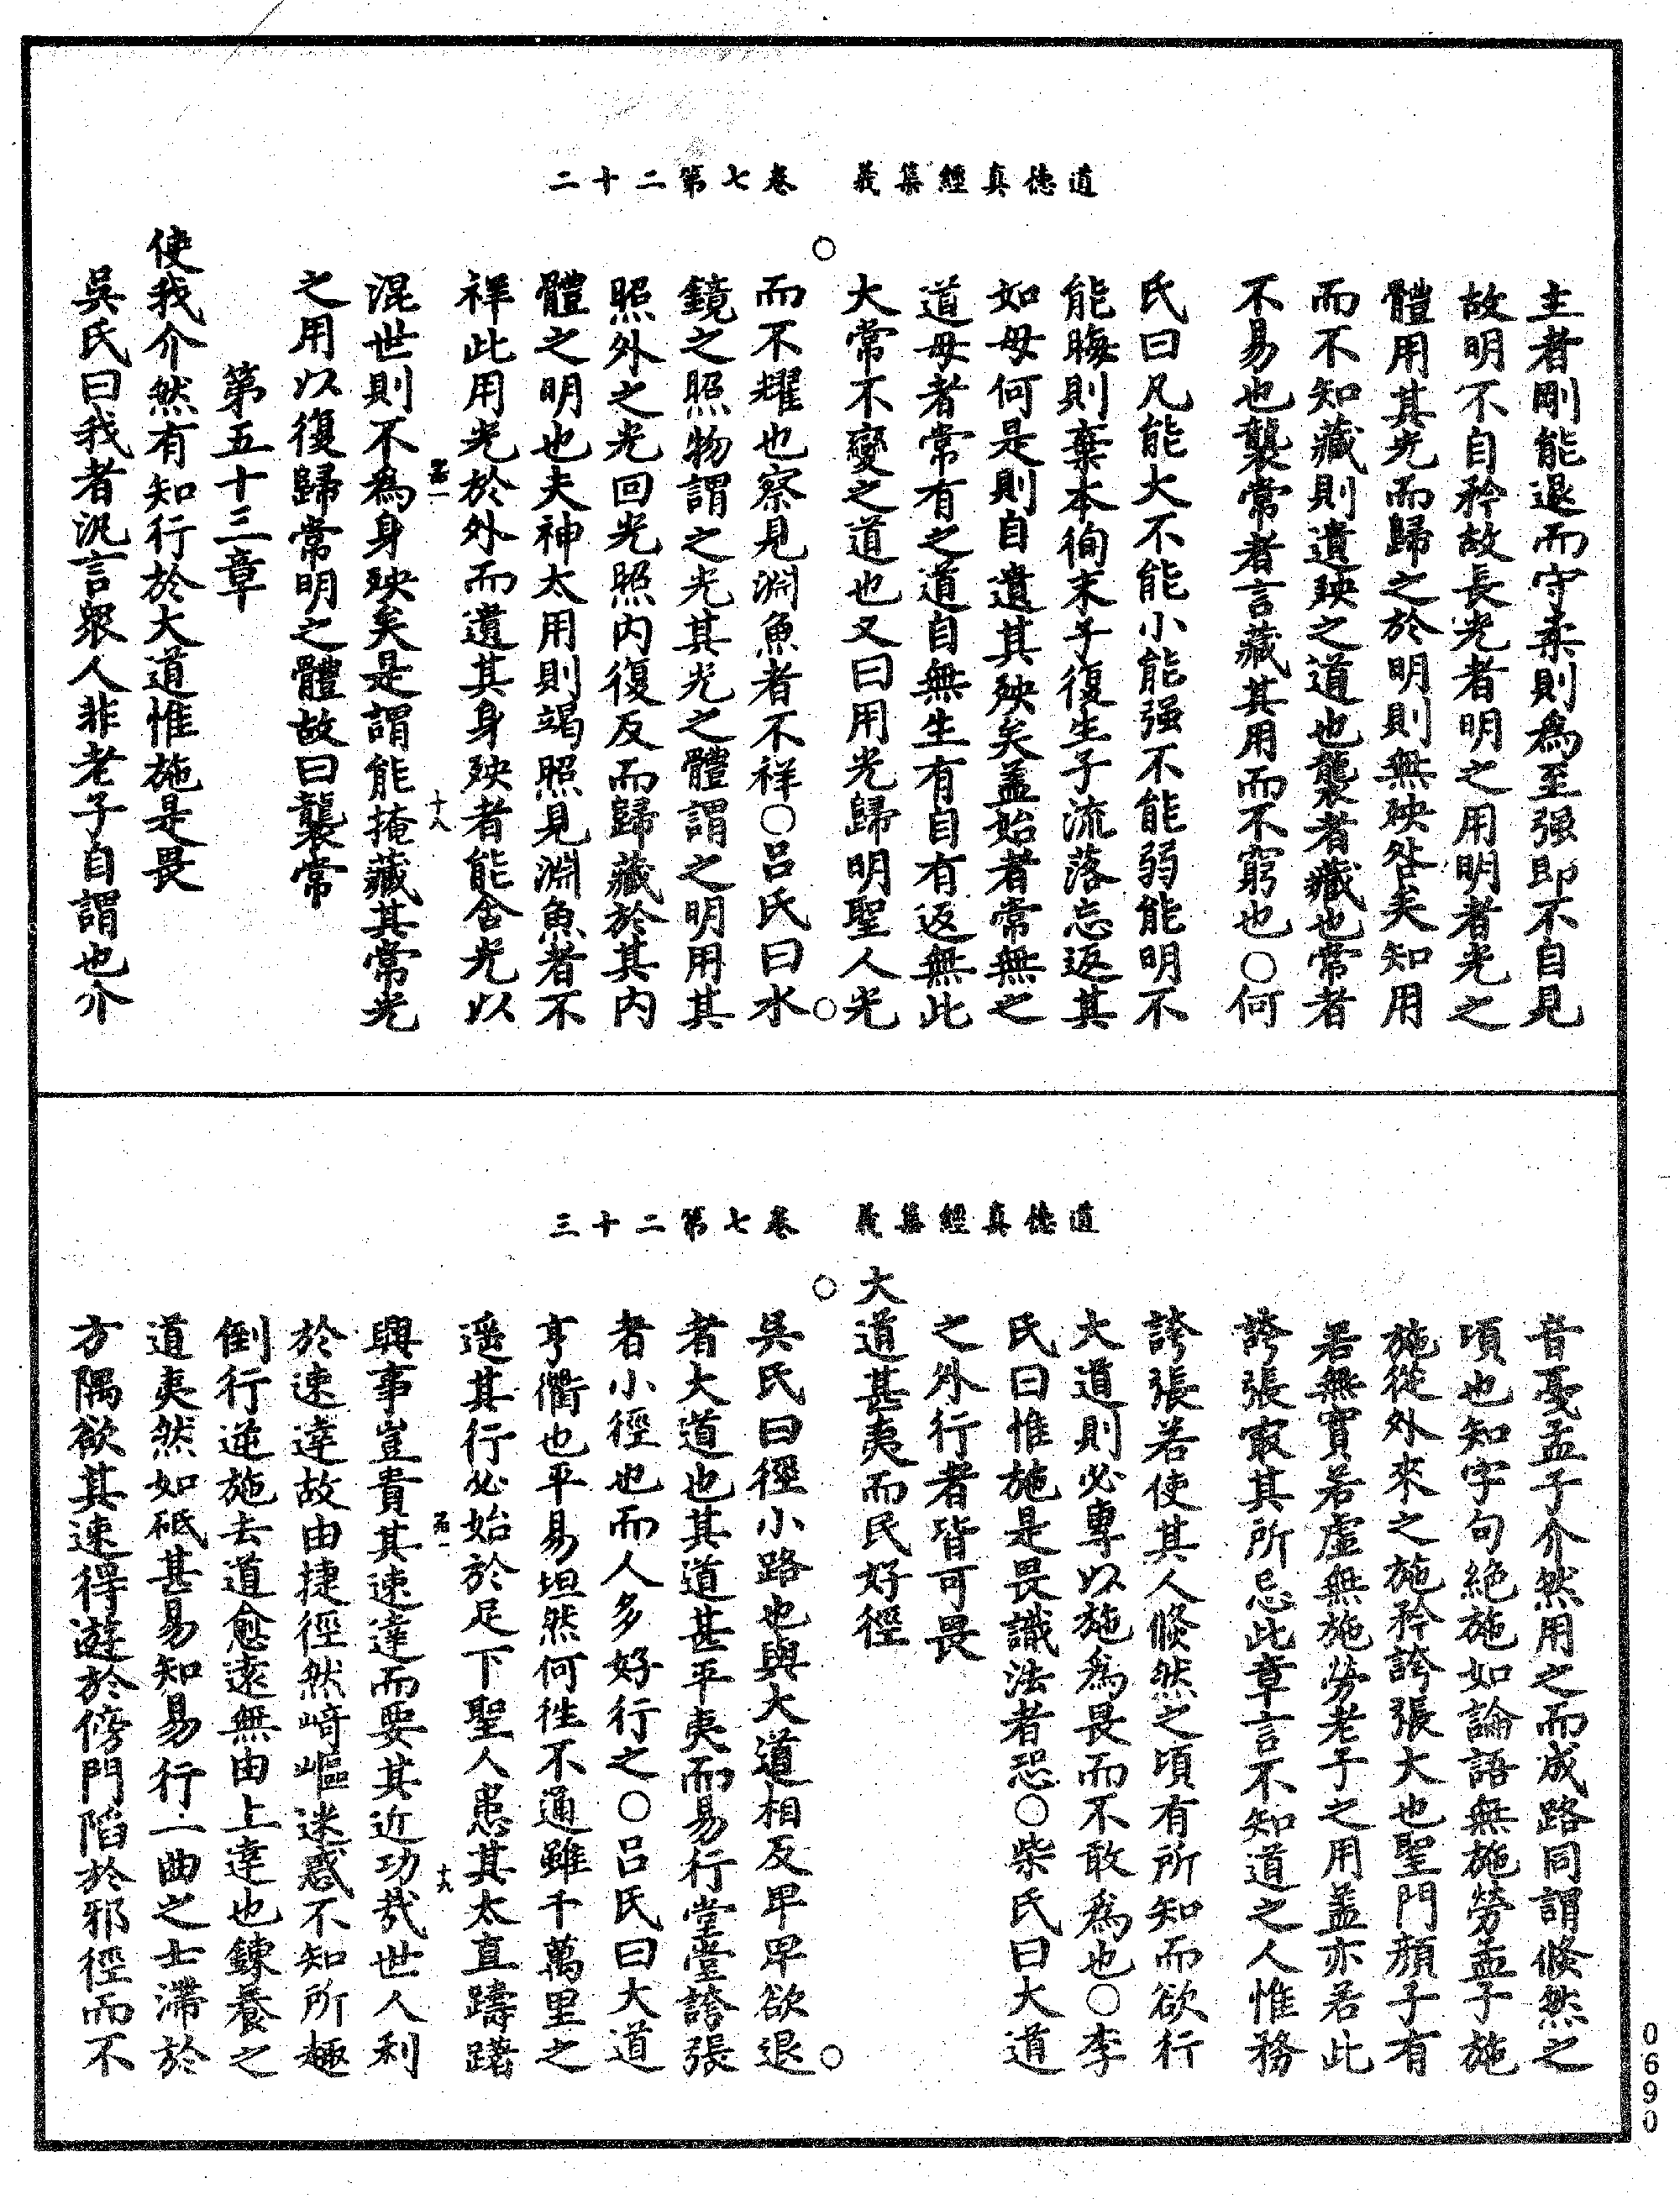 道德真經集義　卷七第二十二
主者剛能退而守柔則為至强即不自見
故明不自矜故長光者明之用明者光之
體用其光而歸之於明則無殃咎矣知用
而不知藏則遺殃之道也襲者藏也常者
不易也襲常者言藏其用而不窮也○何
氏曰凡能大不能小能强不能弱能明不
能晦則棄本徇末子復生子流落忘返其
如母何是則自遺其殃矣盖始者常無之
道母者常有之道自無生有自有返無此
大常不變之道也又曰用光歸明聖人光
而不耀也察見淵魚者不祥○吕氏曰水
鏡之照物謂之光其光之體謂之明用其
照外之光回光照内復反而歸藏於其内
體之明也夫神太用則竭照見淵魚者不
祥此用光於外而遺其身殃者能含光以
混世則不為身殃矣是謂能掩藏其常光
之用以復歸常明之體故曰襲常
第五十三章
使我介然有知行於大道惟施是畏
吳氏曰我者汎言衆人非老子自謂也介
道德真經集義　卷七第二十三
音戞孟子介然用之而成路同謂倐然之
頃也知字句絶施如論語無施勞孟子施
施從外來之施矜誇張大也聖門顔子有
若無實若虚無施勞老子之用盖亦若此
誇張寂其所忌此章言不知道之人惟務
誇張若使其人倐然之頃有所知而欲行
大道則必專以施為畏而不敢為也○李
氏曰惟施是畏識法者恐○柴氏曰大道
之外行者皆可畏
大道甚夷而民好徑
吳氏曰徑小路也與大道相反卑卑欲退
者大道也其道甚平夷而易行堂堂誇張
者小徑也而人多好行之○吕氏曰大道
亨衢也平易坦然何徃不通雖千萬里之
遥其行必始於足下聖人患其太直躊躇
興事豈貴其速達而要其近功哉世人利
於速達故由捷徑然﨑嶇迷惑不知所趣
倒行逆施去道愈逺無由上達也鍊養之
道夷然如砥甚易知易行一曲之士滯於
方隅欲其速得遊於傍門陷於邪徑而不
0690